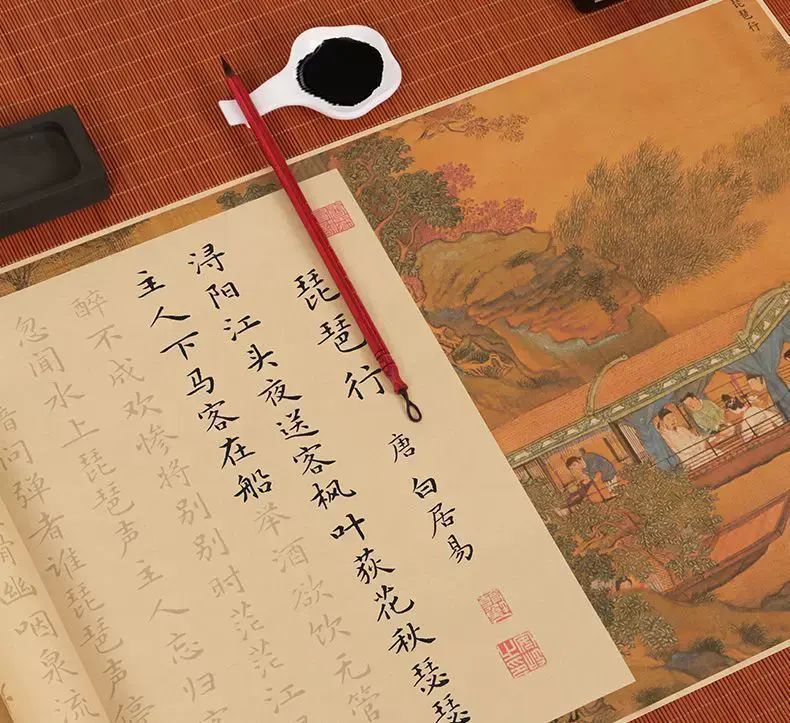 琵琶行
琵琶行
唐 白居易
浔阳江头夜送客枫叶荻花秋瑟瑟
主人下马客在船举酒欲饮无管
醉不成欢惨将别别时茫茫江
忽闻水上琵琶声主人忘归客
问弹者谁琵琶声停
幽咽泉流